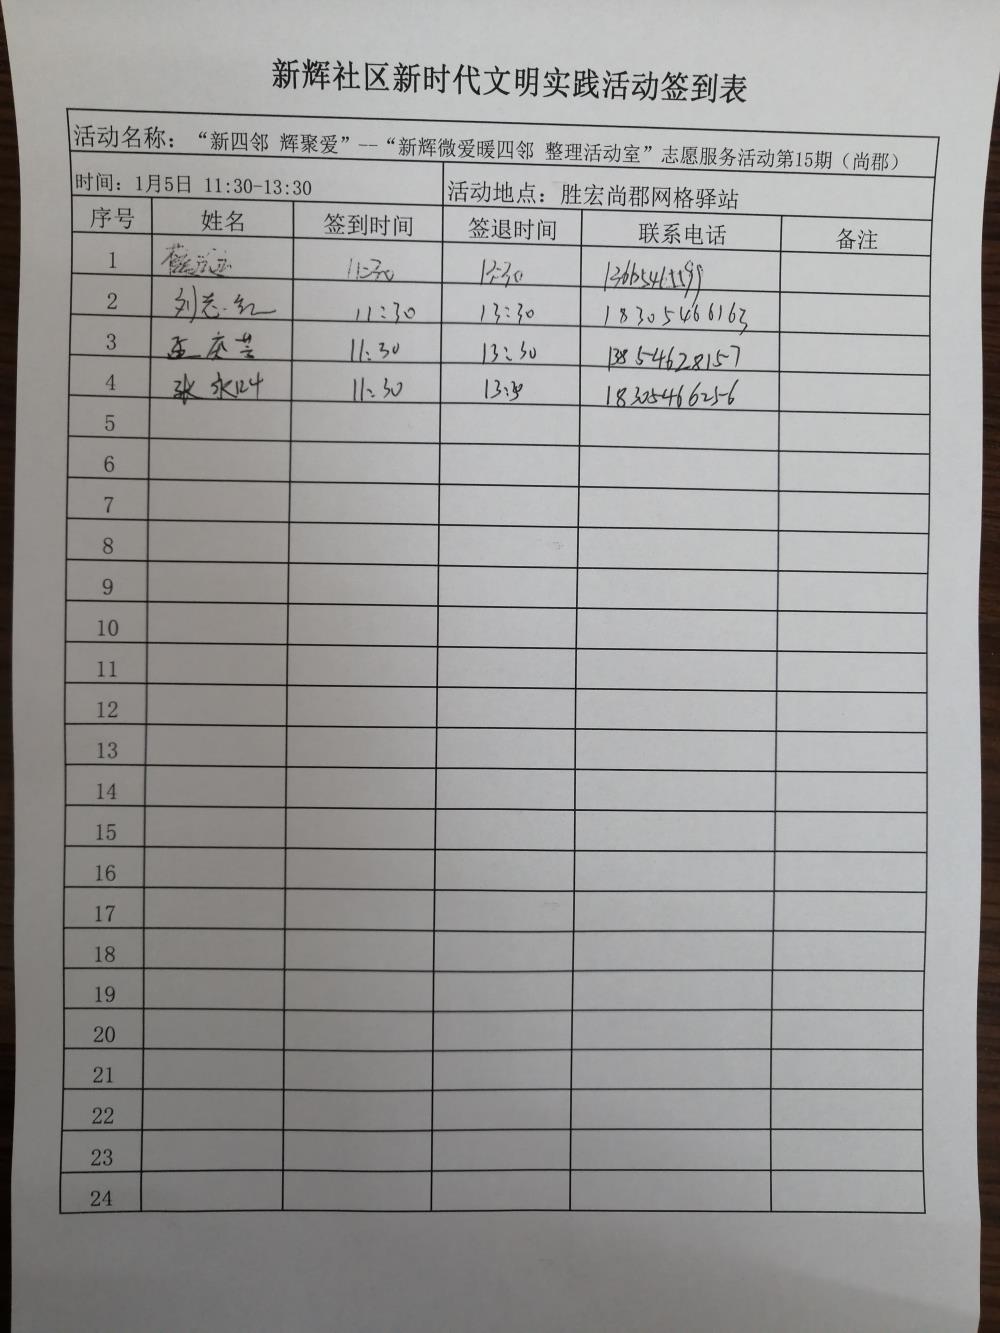 新辉社区新时代文明实践活动签到表
活动名称：“新四邻 辉聚爱”--“新辉微爱暖四邻 整理活动室”志愿服务活动第15期（尚郡）
时间：1月5日 11:30-13:30 活动地点：胜宏尚郡网格驿站
序号 姓名 签到时间 签退时间 联系电话 备注
1 11:30 13:30
2 刘志红 11:30 13:30 18305466163
3 王庆芸 11:30 13:30 13854628157
4 张 11:30 13:30 18305466256
5
6
7
8
9
10
11
12
13
14
15
16
17
18
19
20
21
22
23
24